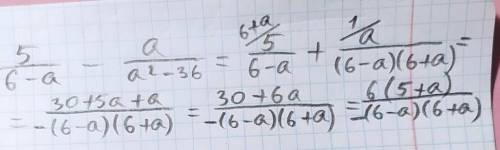 5/(6-a) - a/(a²-36) = 6+a/ 5/(6-a) + 1/ a/((6-a)(6+a)) =
= (30+5a+a)/(-(6-a)(6+a)) = (30+6a)/(-(6-a)(6+a)) = 6(5+a)/(-(6-a)(6+a))